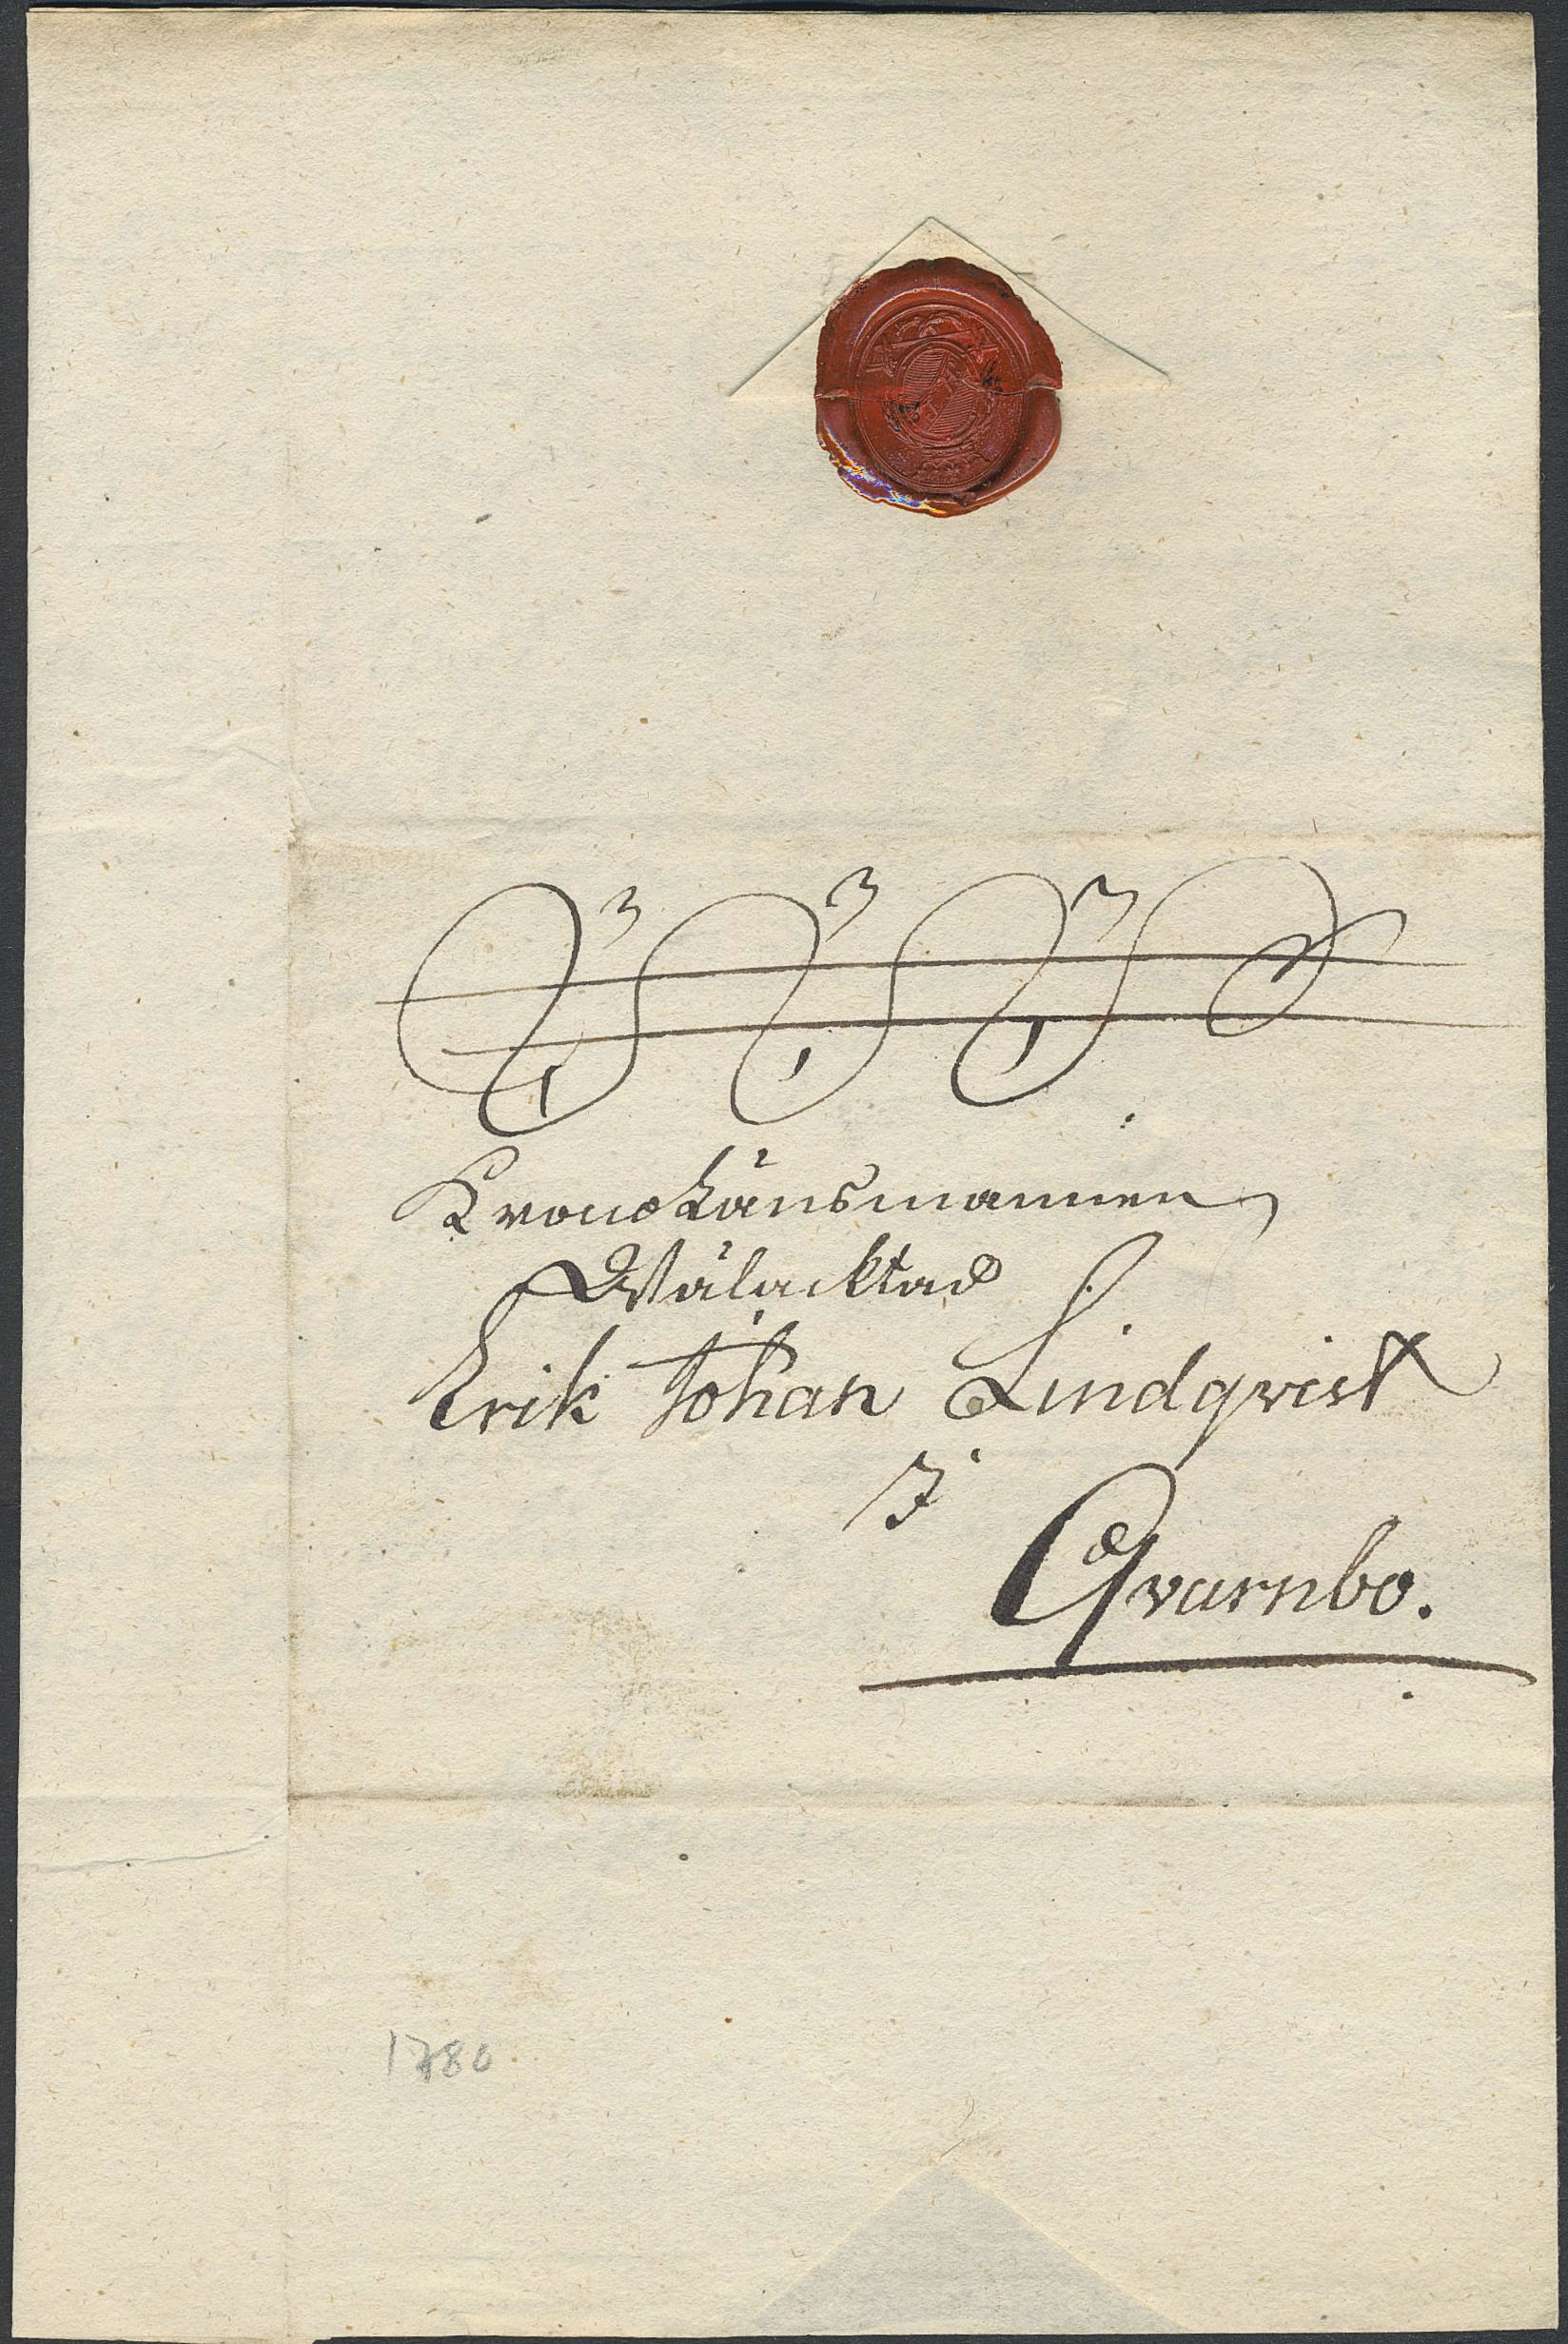 Krono Länsmannen
Wälacktad
Erik Johan Lindqvist
I
Qvarnbo.
1780